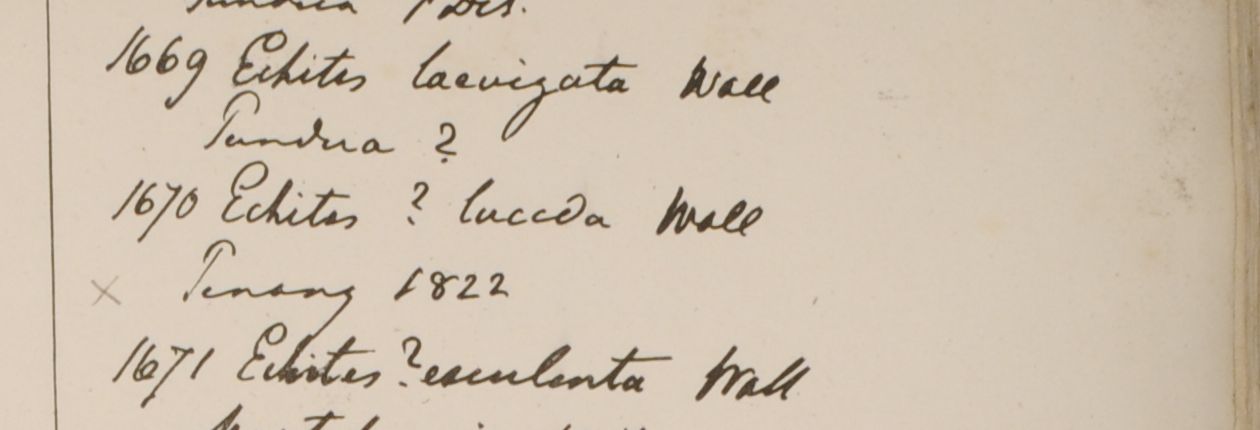 1669 Echites laevigata Wall
Pundua ?
1670 Echites ? lucida Wall
× Penang 1822
1671 Echites ? esculenta Wall